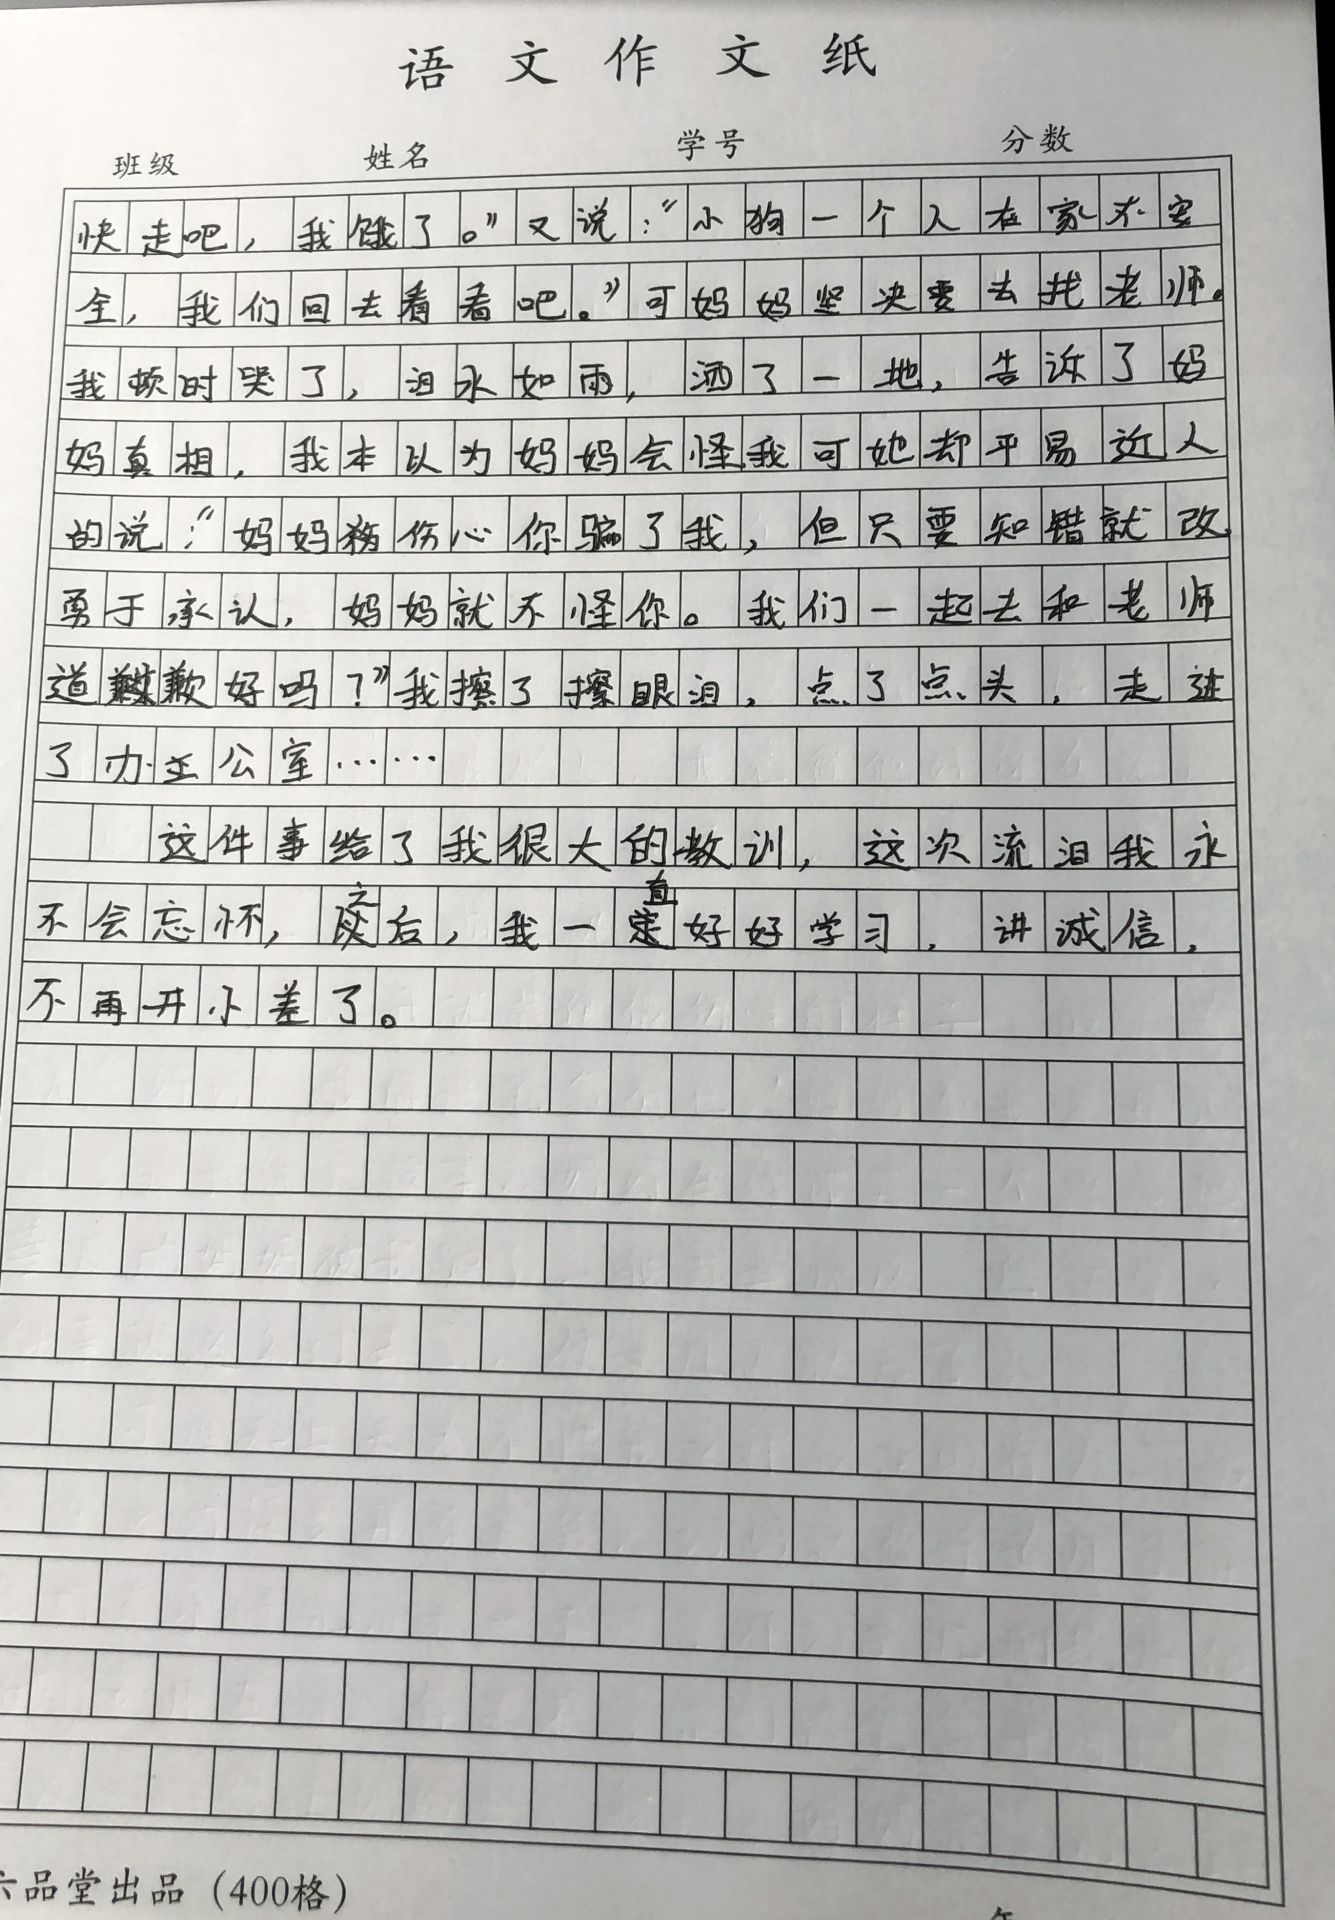 语文作文纸
班级 姓名 学号 分数
快走吧，我饿了。”又说：“小狗一个人在家不安
全，我们回去看看吧。”可妈妈坚决要去找老师。
我顿时哭了，泪水如雨，洒了一地，告诉了妈
妈真相，我本以为妈妈会怪我可她却平易近人
的说：“妈妈伤心你骗了我，但只要知错就改，
勇于承认，妈妈就不怪你。我们一起去和老师
道歉好吗？”我擦了擦眼泪，点了点头，走进
了办公室……
这件事给了我很大的教训，这次流泪我永
不会忘怀，之后，我一直好好学习，讲诚信，
不再开小差了。
六品堂出品（400格）